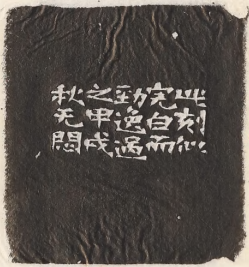 此刻似
完白而
勁逸過
之甲戌
秋无悶